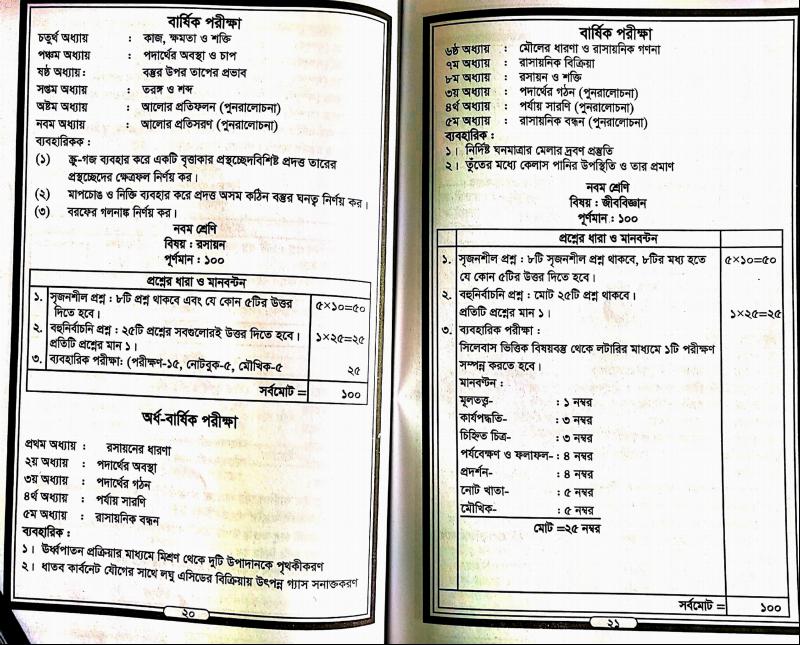 বার্ষিক পরীক্ষা
চতুর্থ অধ্যায় : কাজ, ক্ষমতা ও শক্তি
পঞ্চম অধ্যায় : পদার্থের অবস্থা ও চাপ
ষষ্ঠ অধ্যায় : বস্তুর উপর তাপের প্রভাব
সপ্তম অধ্যায় : তরঙ্গ ও শব্দ
অষ্টম অধ্যায় : আলোর প্রতিফলন (পুনরালোচনা)
নবম অধ্যায় : আলোর প্রতিসরণ (পুনরালোচনা)
ব্যবহারিকক :
(১) স্ক্রু-গজ ব্যবহার করে একটি বৃত্তাকার প্রস্থচ্ছেদবিশিষ্ট প্রদত্ত তারের
প্রস্থচ্ছেদের ক্ষেত্রফল নির্ণয় কর।
(২) মাপচোঙ ও নিক্তি ব্যবহার করে প্রদত্ত অসম কঠিন বস্তুর ঘনত্ব নির্ণয় কর।
(৩) বরফের গলনাঙ্ক নির্ণয় কর।
নবম শ্রেণি
বিষয় : রসায়ন
পূর্ণমান : ১০০
প্রশ্নের ধারা ও মানবন্টন
১. সৃজনশীল প্রশ্ন : ৮টি প্রশ্ন থাকবে এবং যে কোন ৫টির উত্তর
দিতে হবে। ৫×১০=৫০
২. বহুনির্বাচনি প্রশ্ন : ২৫টি প্রশ্নের সবগুলোরই উত্তর দিতে হবে।
প্রতিটি প্রশ্নের মান ১। ১×২৫=২৫
৩. ব্যবহারিক পরীক্ষা: (পরীক্ষণ-১৫, নোটবুক-৫, মৌখিক-৫ ২৫
সর্বমোট = ১০০
অর্ধ-বার্ষিক পরীক্ষা
প্রথম অধ্যায় : রসায়নের ধারণা
২য় অধ্যায় : পদার্থের অবস্থা
৩য় অধ্যায় : পদার্থের গঠন
৪র্থ অধ্যায় : পর্যায় সারণি
৫ম অধ্যায় : রাসায়নিক বন্ধন
ব্যবহারিক :
১। ঊর্ধ্বপাতন প্রক্রিয়ার মাধ্যমে মিশ্রণ থেকে দুটি উপাদানকে পৃথকীকরণ
২। ধাতব কার্বনেট যৌগের সাথে লঘু এসিডের বিক্রিয়ায় উৎপন্ন গ্যাস সনাক্তকরণ
২০
বার্ষিক পরীক্ষা
৬ষ্ঠ অধ্যায় : মৌলের ধারণা ও রাসায়নিক গণনা
৭ম অধ্যায় : রাসায়নিক বিক্রিয়া
৮ম অধ্যায় : রসায়ন ও শক্তি
৩য় অধ্যায় : পদার্থের গঠন (পুনরালোচনা)
৪র্থ অধ্যায় : পর্যায় সারণি (পুনরালোচনা)
৫ম অধ্যায় : রাসায়নিক বন্ধন (পুনরালোচনা)
ব্যবহারিক :
১। নির্দিষ্ট ঘনমাত্রার মেলার দ্রবণ প্রস্তুতি
২। তুঁতের মধ্যে কেলাস পানির উপস্থিতি ও তার প্রমাণ
নবম শ্রেণি
বিষয় : জীববিজ্ঞান
পূর্ণমান : ১০০
প্রশ্নের ধারা ও মানবন্টন
১. সৃজনশীল প্রশ্ন : ৮টি সৃজনশীল প্রশ্ন থাকবে, ৮টির মধ্য হতে ৫×১০=৫০
যে কোন ৫টির উত্তর দিতে হবে।
২. বহুনির্বাচনি প্রশ্ন : মোট ২৫টি প্রশ্ন থাকবে।
প্রতিটি প্রশ্নের মান ১। ১×২৫=২৫
৩. ব্যবহারিক পরীক্ষা :
সিলেবাস ভিত্তিক বিষয়বস্তু থেকে লটারির মাধ্যমে ১টি পরীক্ষণ
সম্পন্ন করতে হবে।
মানবণ্টন :
মূলতত্ত্ব- : ১ নম্বর
কার্যপদ্ধতি- : ৩ নম্বর
চিহ্নিত চিত্র- : ৩ নম্বর
পর্যবেক্ষণ ও ফলাফল- : ৪ নম্বর
প্রদর্শন- : ৪ নম্বর
নোট খাতা- : ৫ নম্বর
মৌখিক- : ৫ নম্বর
মোট =২৫ নম্বর
সর্বমোট = ১০০
২১